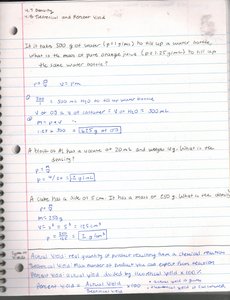 1.7 Density
1.8 Theoretical and Percent Yield
If it takes 500 g of water (ρ = 1 g/mL) to fill up a water bottle,
what is the mass of pure orange juice (ρ = 1.25 g/mL) to fill up
the same water bottle?
ρ = m/V V = m/ρ
① 500/1 = 500 mL H₂O to fill up water bottle
V of OJ is V of container = V of H₂O = 500 mL
② m = ρ × V
1.25 × 500 = 625 g of OJ
A block of Al has a volume of 20 mL and weighs g. What is the
density?
ρ = m/V
A cube has a side of 5 cm. It has a mass of 250 g. What is the density
ρ = m/V
m = 250 g
V = s³ = 5³ = 125 cm³
ρ = 250/125 = 2 g/cm³
Actual Yield: real quantity of product resulting from a chemical reaction
Theoretical Yield: Max number of product you can expect from reaction
Percent Yield: actual yield divided by theoretical yield × 100%
Percent Yield = Actual Yield/Theoretical Yield × 100
• Actual Yield is given
• Theoretical Yield is calculated